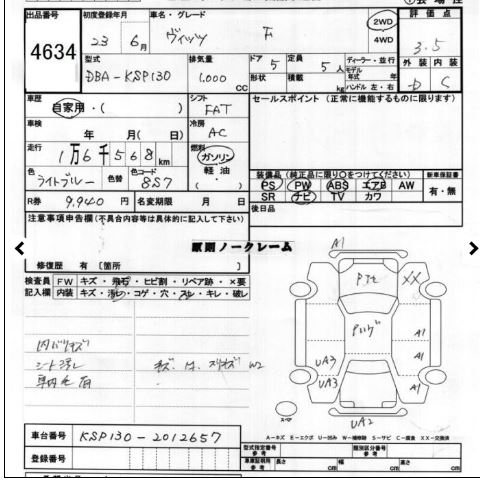 出品番号 初度登録年月 車名・グレード 評価点
4634 23年 6月 ヴィッツ F 2WD 4WD 3.5
型式 排気量 ドア 定員 ディーラー・並行 外装 内装
DBA-KSP130 1,000 CC 5 5人 モデル年式 年 D C
形状 積載 kg ハンドル 左・右
車歴 シフト セールスポイント(正常に機能するものに限ります)
自家用・( ) FAT
車検 冷房
年 月( 日) AC
走行 燃料
1万6千568km ガソリン
色 色替 色コード 軽油
ライトブルー 857 ( ・ )
装備品(純正品に限り○をつけてください) 新車保証書
PS PW ABS エアB AW 有・無
SR ナビ TV カワ
R券 9,940円 名変期限 月 日 後日品
注意事項申告欄(不具合内容等は具体的に記入して下さい)
原則ノークレーム
修復歴 有〔箇所 〕
検査員 FW キズ・飛石・ヒビ割・リペア跡・×要
記入欄 内装 キズ・汚レ・コゲ・穴・スレ・キレ・破レ
A1
XX
A1
A1
UA3
UA3
A1
UA2
内バリキズ
シート汚レ
W2
スペア
A=キズ E=エクボ U=凹み W=補修跡 S=サビ C=腐食 XX=交換済
車台番号 KSP130-2012657
登録番号
型式指定番号 参考 類別区分番号 参考
車庫証明用 参考 長さ cm 幅 cm 高さ cm